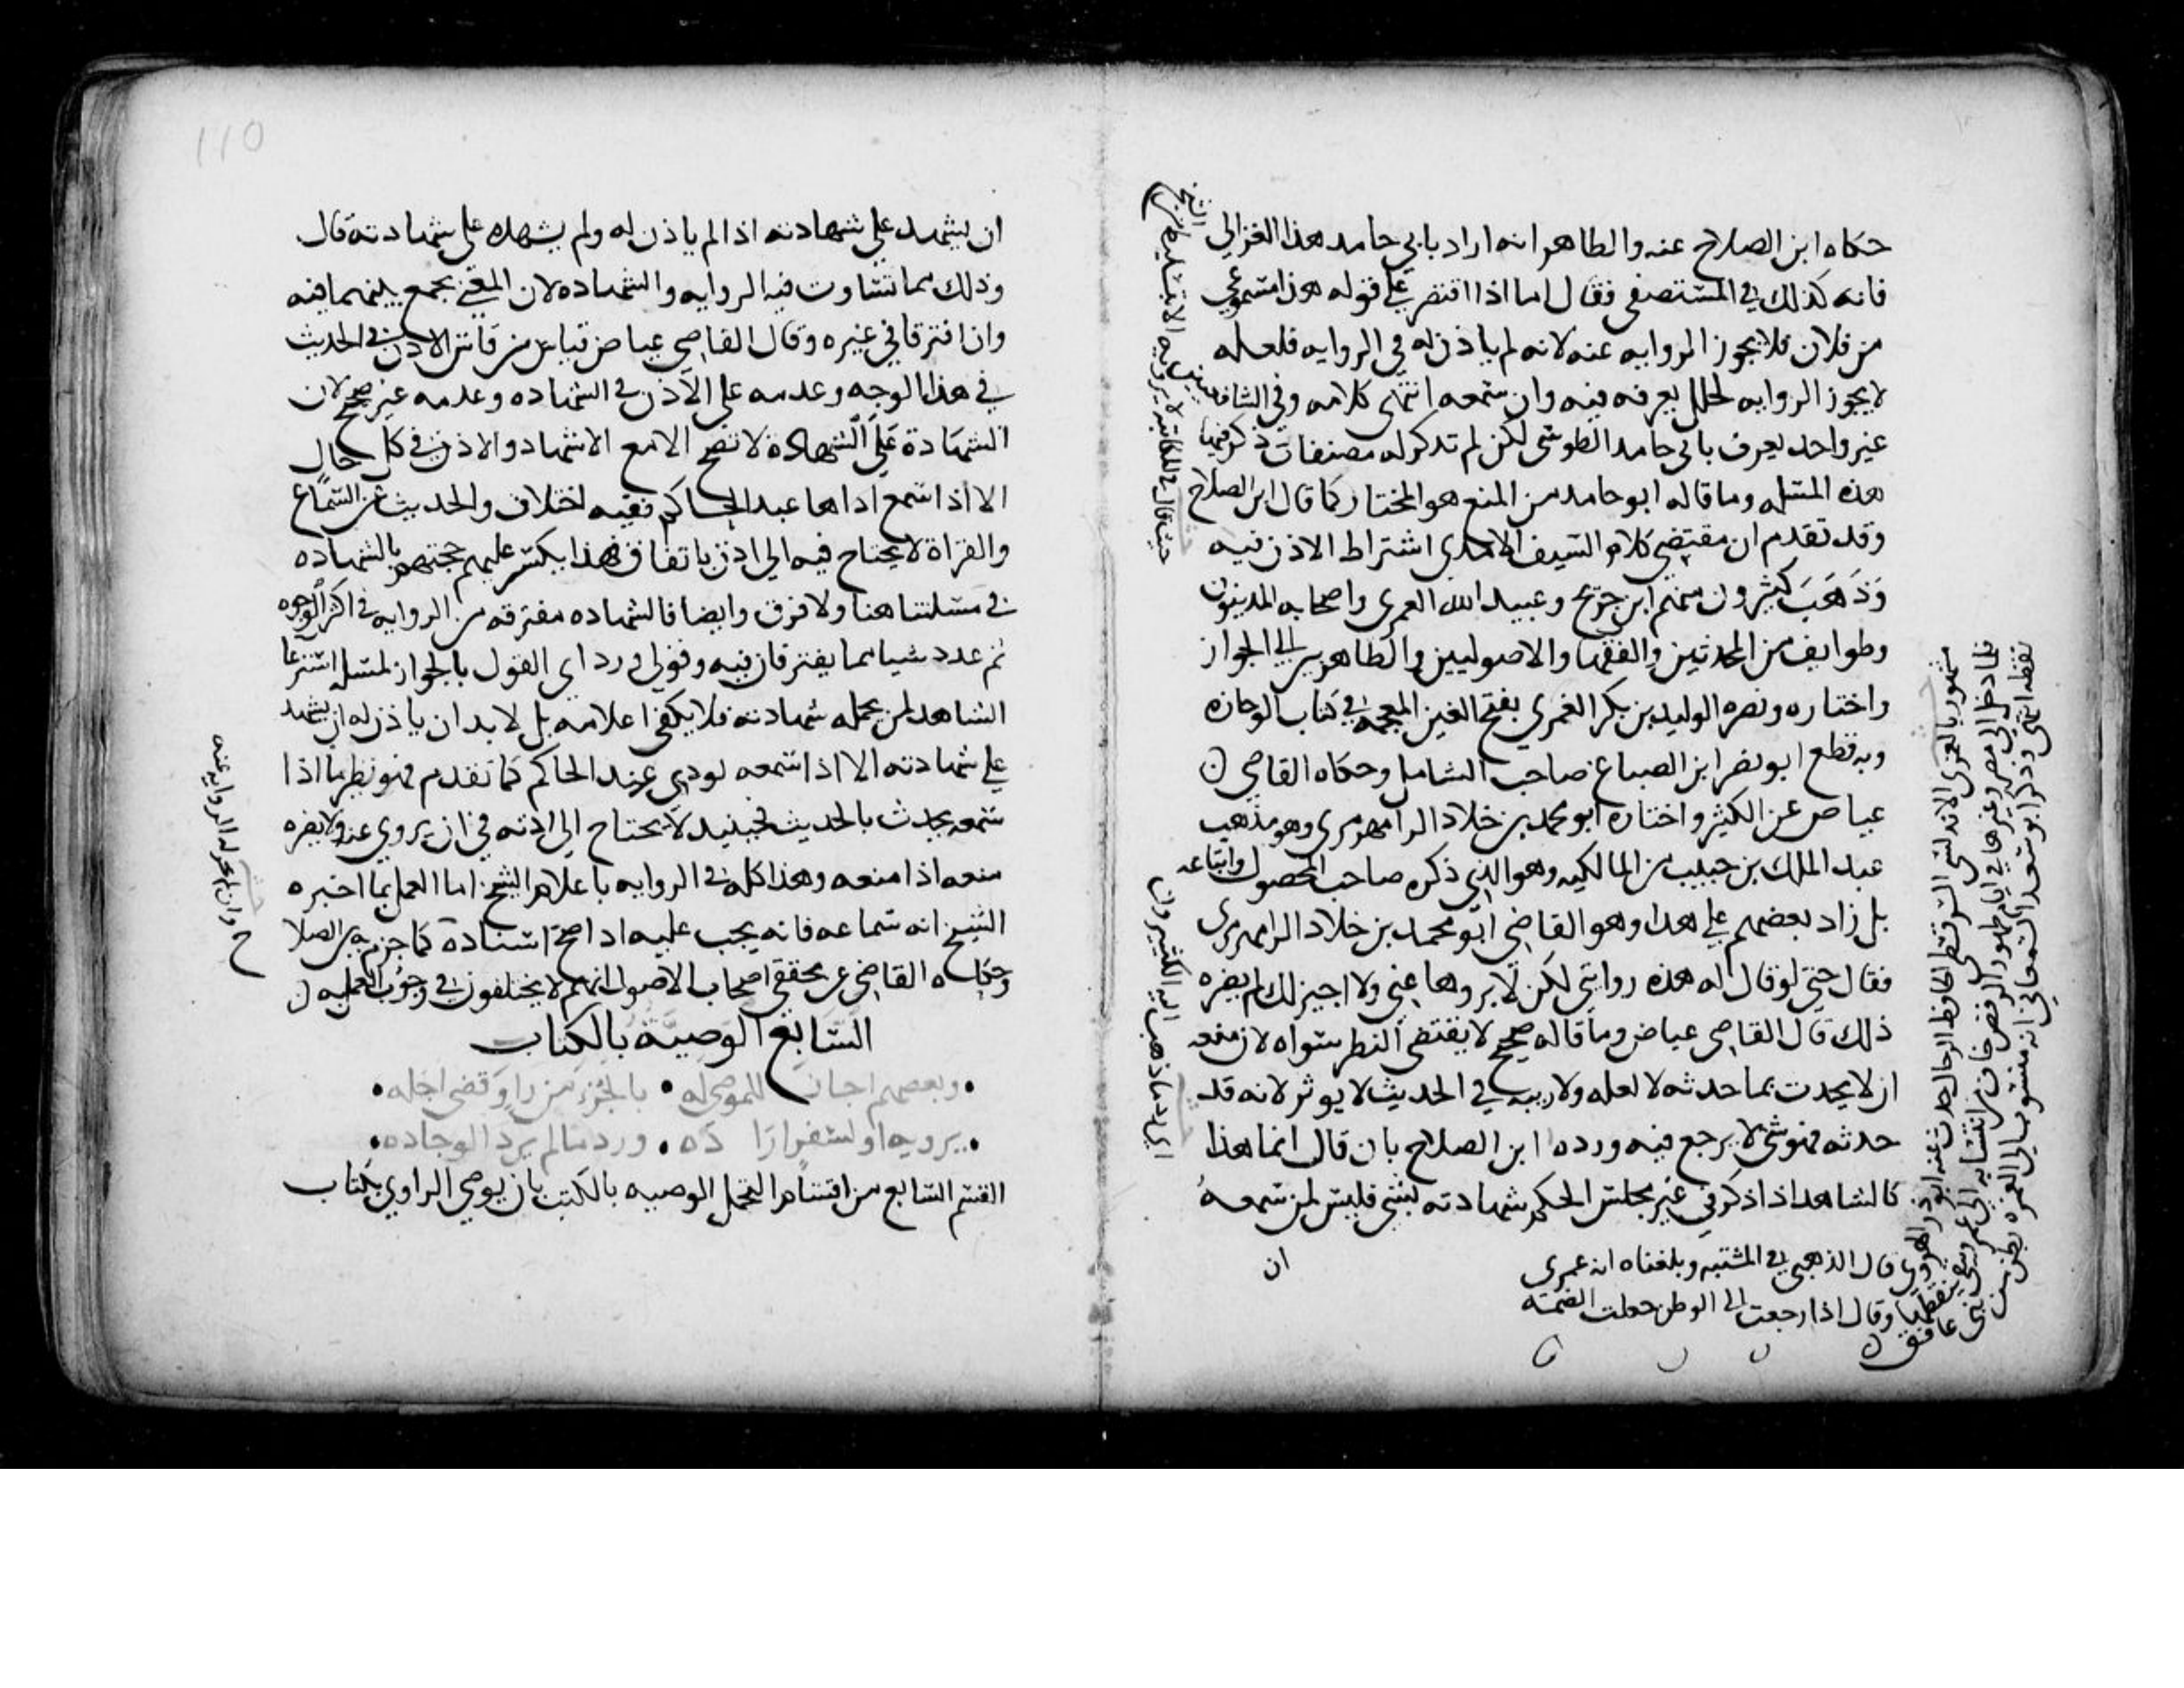 حكاه ابن الصلاح عنه والظاهر انه اراد بابي حامد هذا الغزالي
فانه كذلك في المستصفى فقال اما اذا اقتصر على قوله هذا مسموعي
من فلان فلا يجوز الروايه عنه لانه لم ياذن له في الروايه فلعله
لا يجوز الروايه لخلل يعرفه فيه وان سمعه انتهى كلامه وفي الشافعيين
غير واحد يعرف بابي حامد الطوسي لكن لم تذكر له مصنفات ذكر فيها
هذه المسئله وما قاله ابو حامد من المنع هو المختار كما قال ابن الصلاح
وقد تقدم ان مقتضى كلام السيف الامدي اشتراط الاذن فيه
وذهب كثيرون منهم ابن جريج وعبيد الله العمري واصحابه المدنيون
وطوايف من المحدثين والفقها والاصوليين والظاهريين الى الجواز
واختاره ونصره الوليد بن بكر الغمري بفتح الغين المعجمه في كتاب الوجازه
وبه قطع ابو نصر ابن الصباغ صاحب الشامل وحكاه القاضي
عياض عن الكثير واختاره ابو محمد بن خلاد الرامهرمزي وهو مذهب
عبد الملك بن حبيب من المالكيه وهو الذي ذكره صاحب المحصول واتباعه
بل زاد بعضهم على هذا وهو القاضي ابو محمد بن خلاد الرامهرمزي
فقال حتى لو قال له هذه روايتي لكن لا تروها عني ولا اجيز لك لم يضره
ذلك قال القاضي عياض وما قاله صحيح لا يقتضي النظر سواه لان منعه
ان لا يحدث بما حدثه لا لعله ولا ريبه في الحديث لا يوثر لانه قد
حدثه فهو شي لا يرجع فيه ورده ابن الصلاح بان قال انما هذا
كالشاهد اذا ذكر في غير مجلس الحكم شهادته بشي فليس لمن سمعه
ان
اي رد ما ذهب اليه الكثيرون
مشهور بالعمري الاندلسي السرقسطي الحافظ الرحال حدث عنه ابو ذر الهروي قال الذهبي في المشتبه وبلغناه انه عمري
وقال اذا رجعت الى الوطن جعلت الضمه
ان يشهد على شهادته اذا لم ياذن له ولم يشهده على شهادته قال
وذلك مما تساوت فيه الروايه والشهاده لان المعنى يجمع بينهما فيه
وان افترقا في غيره وقال القاضي عياض قياس من قاس الاذن في الحديث
في هذا الوجه وعدمه على الاذن في الشهاده وعدمه غير صحيح لان
الشهادة على الشهادة لا تصح الا مع الاشهاد والاذن في كل حال
الا اذا سمع اداها عند الحاكم ففيه اختلاف والحديث عن السماع
والقراة لا يحتاج فيه الى اذن باتفاق فهذا يكسر عليهم حجتهم بالشهاده
في مسئلتنا هنا ولا فرق وايضا فالشهاده مفترقه من الروايه في اكثر الوجوه
ثم عدد شيا مما يفترقان فيه وقولي ورد اي القول بالجواز لمسئله استرعا
الشاهد لمن يحمله شهادته فلا يكفي اعلامه بل لا بد ان ياذن له ان يشهد
على شهادته الا اذا سمعه يودي عند الحاكم كما تقدم فهو نظير ما اذا
سمعه يحدث بالحديث فحينيذ لا يحتاج الى اذنه في ان يروي عنه ولا يضره
منعه اذا منعه وهذا كله في الروايه باعلام الشيخ اما العمل بما اخبره
الشيخ انه سماعه فانه يجب عليه اذا صح اسناده كما جزم به ابن الصلاح
وحكاه القاضي عن محققي اصحاب الاصول انهم لا يختلفون في وجوب العمل به
وان لم يجز له الروايه عنه
السابع الوصية بالكتاب
وبعضهم اجاز للموصى له • بالجزء من راو قضى اجله
يرويه او لسفر اراده • ورد ما لم يرد الوجاده
القسم السابع من اقسام التحمل الوصيه بالكتب بان يوصي الراوي بكتاب